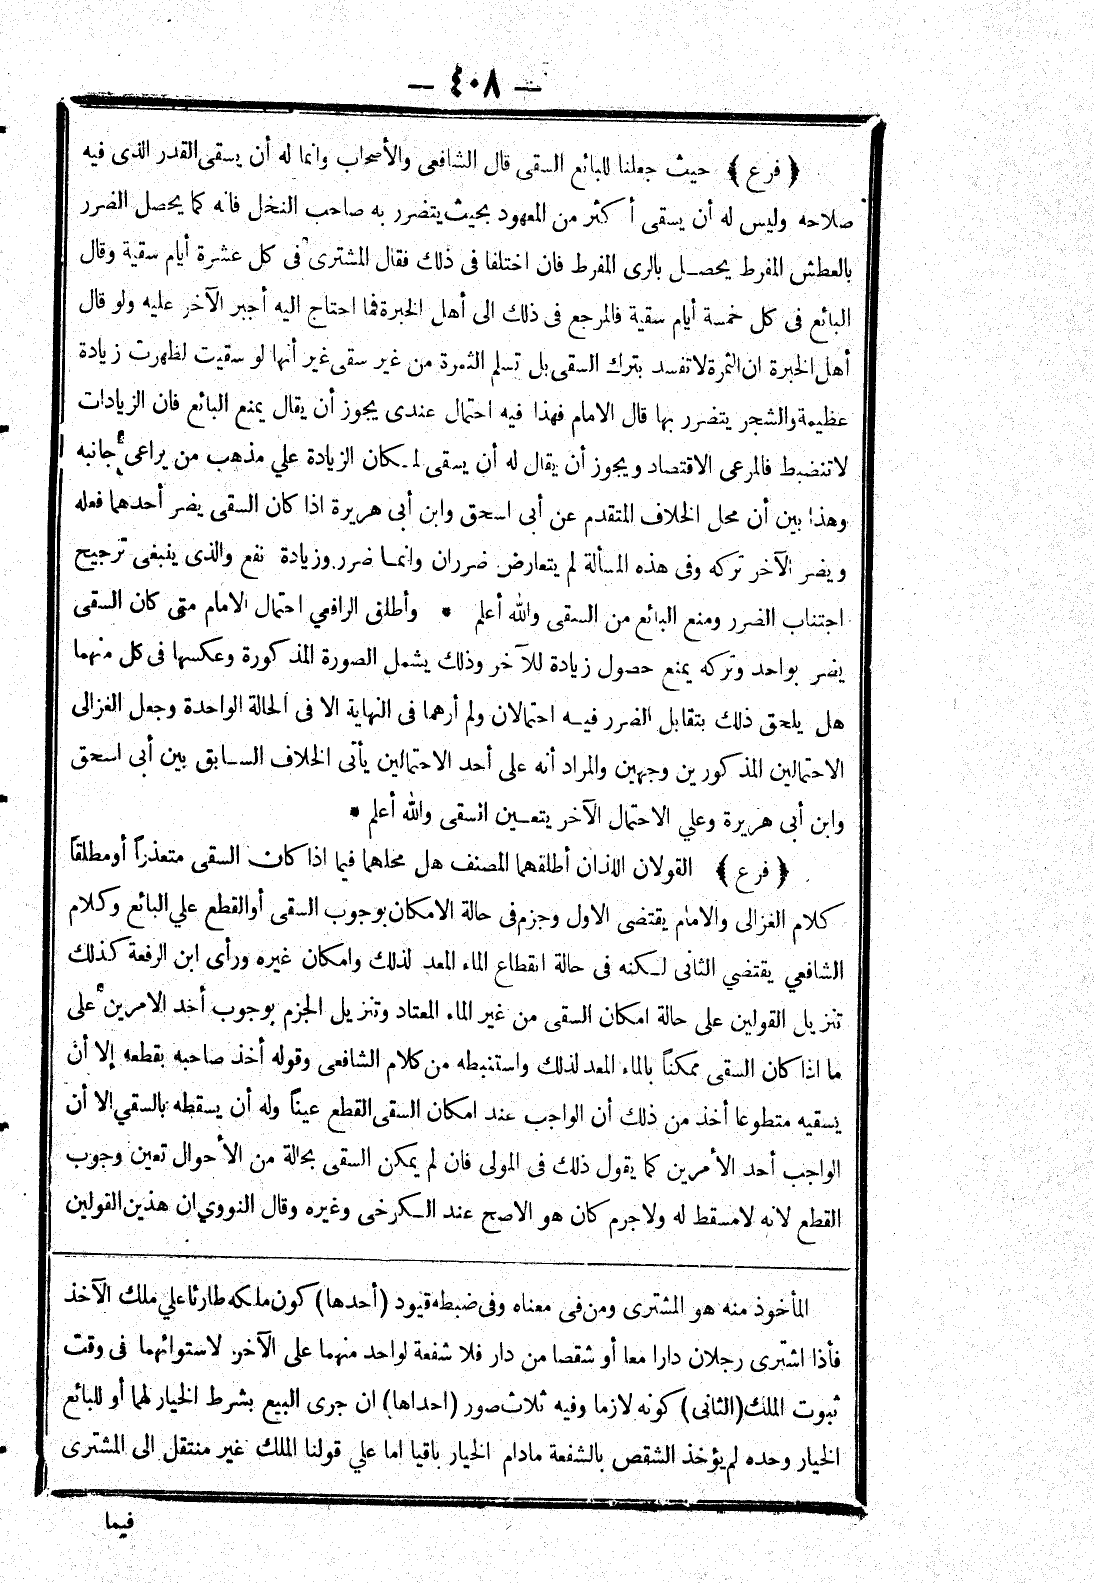 — ٤٠٨ —
﴿ فرع ﴾ حيث جعلنا للبائع السقى قال الشافعى والأصحاب وانما له أن يسقى القدر الذى فيه
صلاحه وليس له أن يسقى أكثر من المعهود بحيث يتضرر به صاحب النخل فانه كما يحصل الضرر
بالعطش المفرط يحصل بالرى المفرط فان اختلفا فى ذلك فقال المشترى فى كل عشرة أيام سقية وقال
البائع فى كل خمسة أيام سقية فالمرجع فى ذلك الى أهل الخبرة فما احتاج اليه أجبر الآخر عليه ولو قال
أهل الخبرة ان الثمرة لا تفسد بترك السقى بل تسلم الثمرة من غير سقى غير أنها لو سقيت لظهرت زيادة
عظيمة والشجر يتضرر بها قال الامام فهذا فيه احتمال عندى يجوز أن يقال يمنع البائع فان الزيادات
لا تنضبط فالمرعى الاقتصاد ويجوز أن يقال له أن يسقى لمكان الزيادة علي مذهب من يراعى جانبه
وهذا بين أن محل الخلاف المتقدم عن أبى اسحق وابن أبى هريرة اذا كان السقى يضر أحدهما فعله
ويضر الآخر تركه وفى هذه المسألة لم يتعارض ضرران وانما ضرر وزيادة نفع والذى ينبغى ترجيح
اجتناب الضرر ومنع البائع من السقى والله أعلم * وأطلق الرافعي احتمال الامام متى كان السقى
يضر بواحد وتركه يمنع حصول زيادة للآخر وذلك يشمل الصورة المذكورة وعكسها فى كل منهما
هل يلحق ذلك بتقابل الضرر فيه احتمالان ولم أرهما فى النهاية الا فى الحالة الواحدة وجعل الغزالى
الاحتمالين المذكورين وجهين والمراد أنه على أحد الاحتمالين يأتى الخلاف السابق بين أبى اسحق
وابن أبى هريرة وعلي الاحتمال الآخر يتعين السقى والله أعلم *
﴿ فرع ﴾ القولان اللذان أطلقهما المصنف هل محلهما فيما اذا كان السقى متعذراً أو مطلقاً
كلام الغزالى والامام يقتضى الاول وجزم فى حالة الامكان بوجوب السقى أو القطع علي البائع وكلام
الشافعي يقتضي الثانى لكنه فى حالة انقطاع الماء المعد لذلك وامكان غيره ورأى ابن الرفعة كذلك
تنزيل القولين على حالة امكان السقى من غير الماء المعتاد وتنزيل الجزم بوجوب أحد الامرين على
ما اذا كان السقى ممكناً بالماء المعد لذلك واستنبطه من كلام الشافعى وقوله أخذ صاحبه بقطعه إلا أن
يسقيه متطوعا أخذ من ذلك أن الواجب عند امكان السقى القطع عيناً وله أن يسقطه بالسقي الا أن
الواجب أحد الأمرين كما يقول ذلك فى المولى فان لم يمكن السقى بحالة من الأحوال تعين وجوب
القطع لانه لا مسقط له ولا جرم كان هو الاصح عند الكرخى وغيره وقال النووي ان هذين القولين
المأخوذ منه هو المشترى ومن فى معناه وفى ضبطه قيود (أحدها) كون ملكه طارئا علي ملك الآخذ
فأذا اشترى رجلان دارا معا أو شقصا من دار فلا شفعة لواحد منهما على الآخر لاستوائهما فى وقت
ثبوت الملك (الثانى) كونه لازما وفيه ثلاث صور (احداها) ان جرى البيع بشرط الخيار لهما أو للبائع
الخيار وحده لم يؤخذ الشقص بالشفعة مادام الخيار باقيا اما علي قولنا الملك غير منتقل الى المشترى
فيما